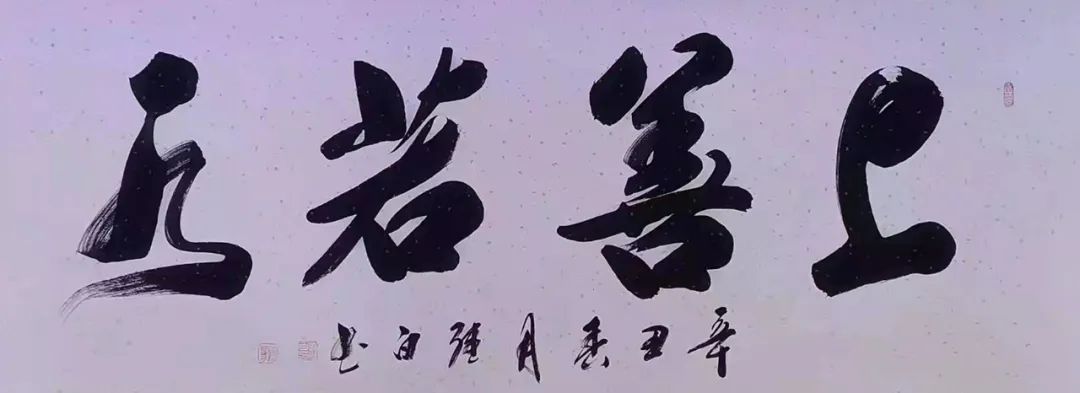 上善若水
辛丑春月 白书